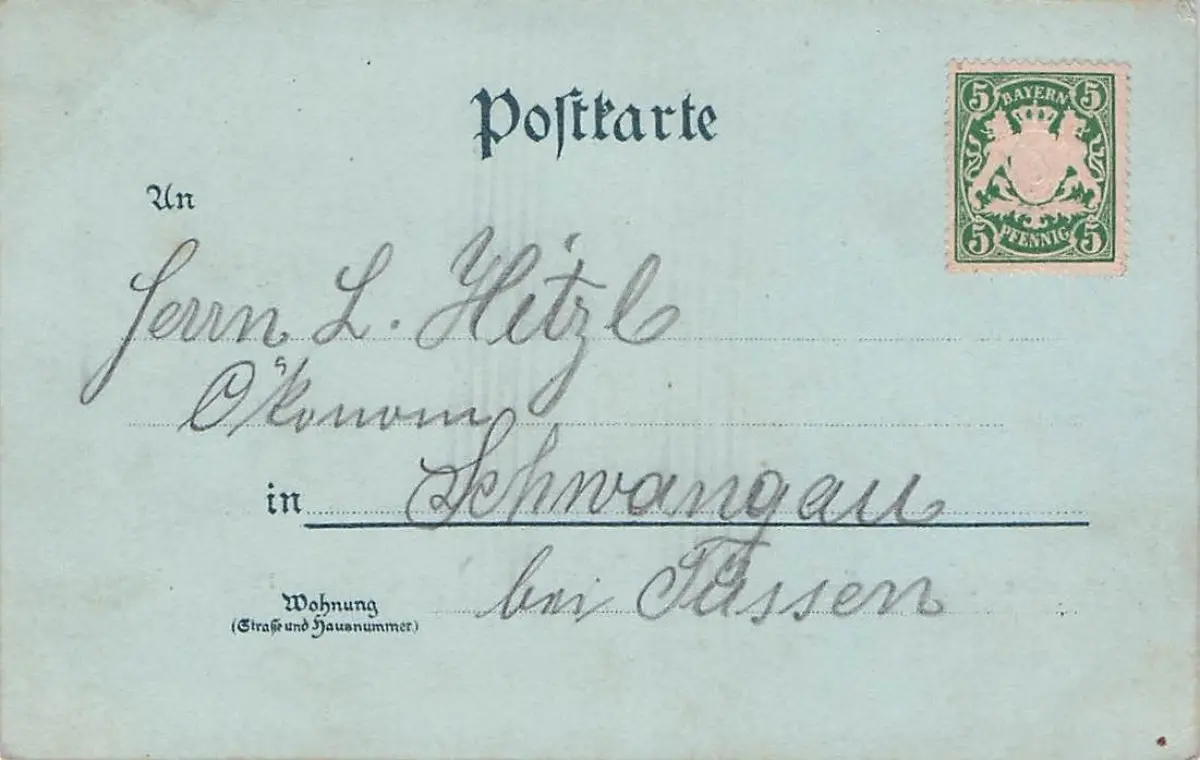 Postkarte
5 BAYERN 5
5 PFENNIG 5
An
Herrn L. Hitzl
Ökonom
in Schwangau
Wohnung bei Füssen
(Straße und Hausnummer)